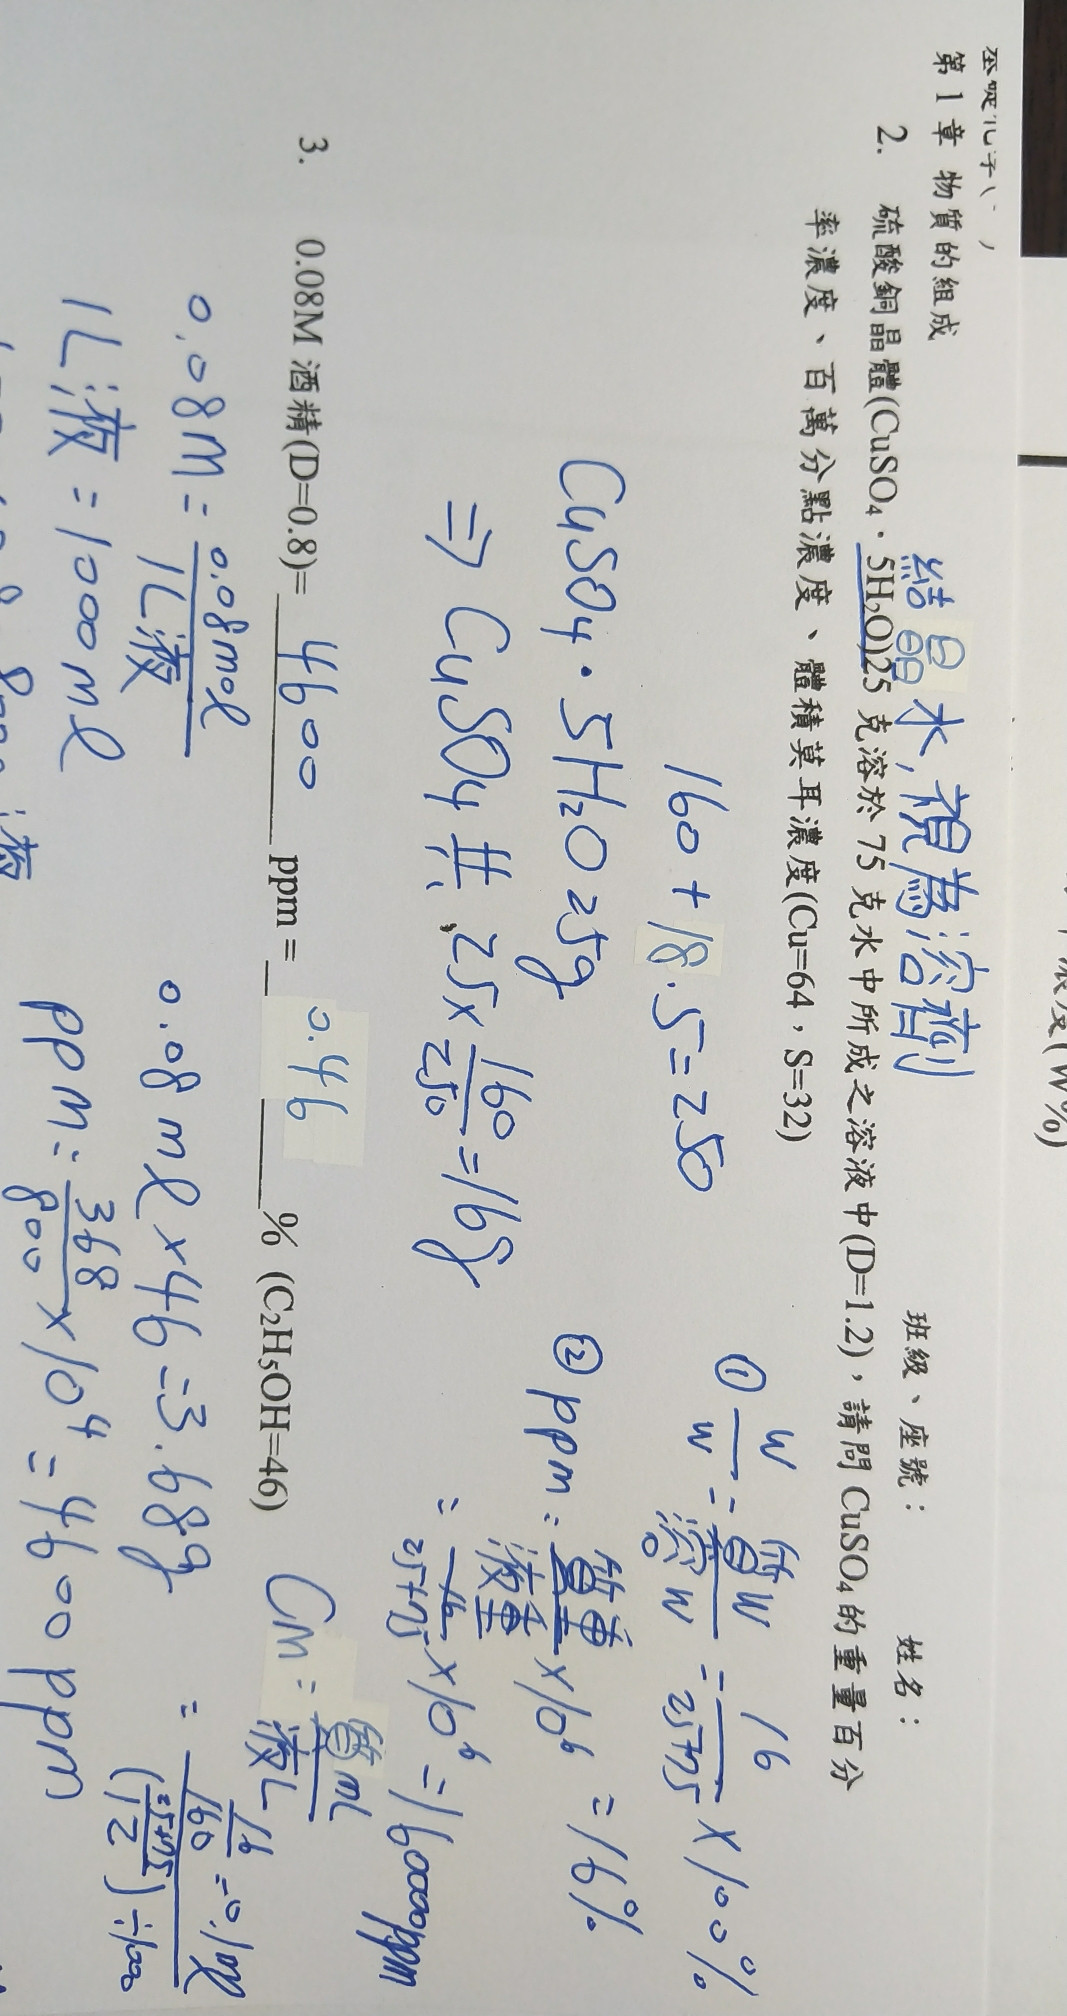 第 1 章 物質的組成
班級、座號：
姓名：
結晶水,視為溶劑
2. 硫酸銅晶體(CuSO₄．5H₂O)25 克溶於 75 克水中所成之溶液中(D=1.2)，請問 CuSO₄的重量百分
率濃度、百萬分點濃度、體積莫耳濃度(Cu=64，S=32)
160 + 18.5 = 250
CuSO4・5H2O 25g
⇒ CuSO4 共 25 × 160/250 = 16g
① W/W = 質W/溶W = 16/25+75 × 100%
= 16%
② ppm = 質重/液重 × 10⁶
= 16/25+75 × 10⁶ = 160000ppm
CM = 質ml/液L
= 16/160 = 0.1ml / (25+75/1.2) ÷ 1000
3. 0.08M 酒精(D=0.8)= 4600 ppm = 0.46 % (C₂H₅OH=46)
0.08M = 0.08mol/1L液
1L液 = 1000ml
0.08ml × 46 = 3.68g
ppm = 368/800 × 10⁴ = 4600ppm